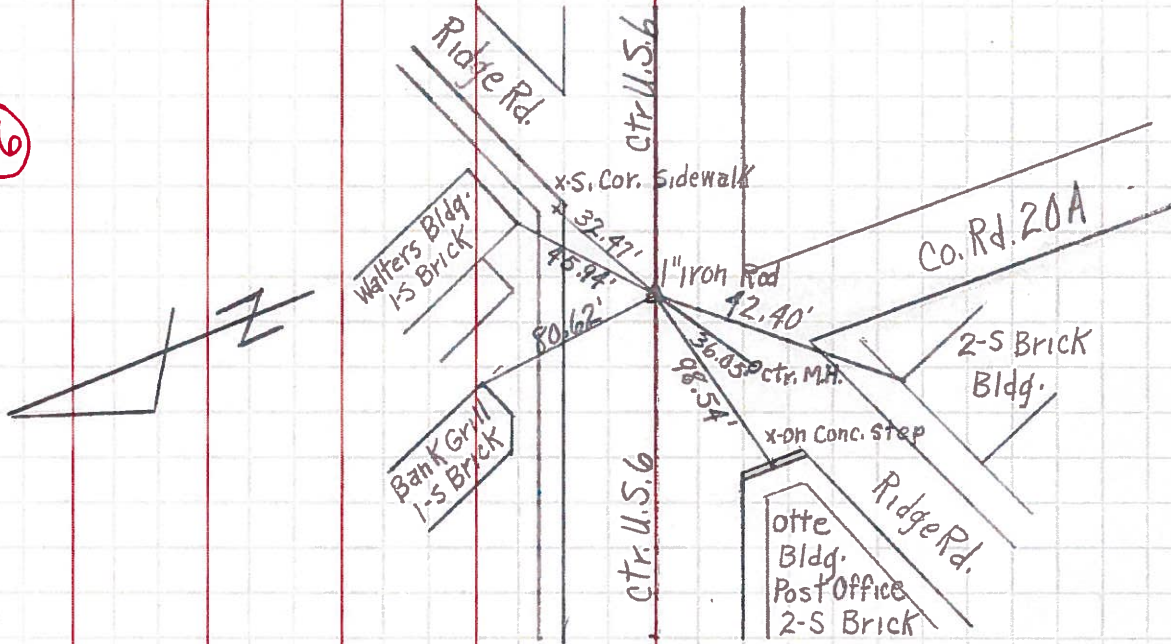 6
Ridge Rd.
Ctr U.S.6
x-S. Cor. Sidewalk
32.47'
Walters Bldg.
1-S Brick
45.94'
1" Iron Rod
Co. Rd. 20A
N
80.62'
42.40'
36.05' ctr. M.H.
98.54'
2-S Brick
Bldg.
Bank Grill
1-S Brick
x-on Conc. Step
Ctr. U.S.6
Ridge Rd.
Otte
Bldg.
Post Office
2-S Brick